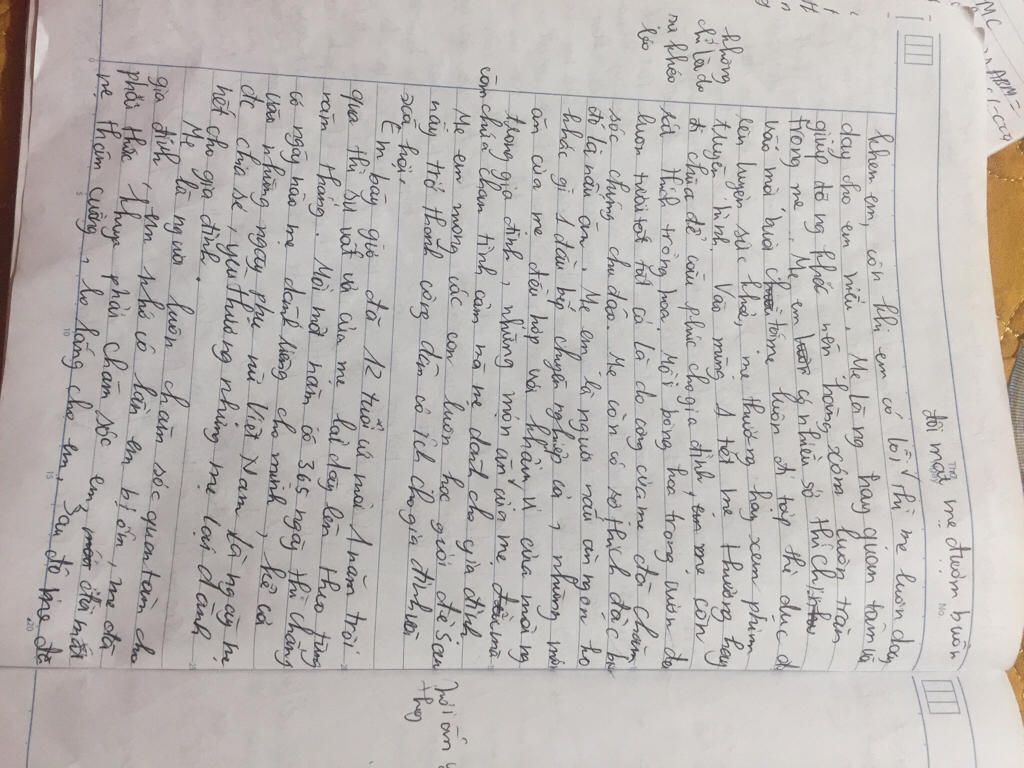 đôi mắt mẹ đượm buồn
thg
No.
khen em, còn khi em có lỗi thì mẹ luôn dạy
dạy cho em hiểu. Mẹ là ng hay quan tâm và
giúp đỡ ng khác nên hàng xóm luôn tán
trọng mẹ. Mẹ em có nhiều sở thích
vào mỗi buổi sáng mẹ luôn đi tập thể dục để
rèn luyện sức khoẻ, mẹ thường hay xem phim
truyền hình. Vào mùng 1 tết mẹ thường hay
đi chùa để cầu phúc cho gia đình, mẹ còn
rất thích trồng hoa. Mỗi bông hoa trong vườn đều
luôn tươi tốt tất cả là do công của mẹ đã chăm
sóc chúng chu đáo. Mẹ còn có sở thích đặc biệt
đó là nấu ăn. Mẹ em là người nấu ăn ngon ko
khác gì 1 đầu bếp chuyên nghiệp cả, những món
ăn của mẹ đều hợp với khẩu vị của mỗi ng
trong gia đình, những món ăn của mẹ
còn chứa chan tình cảm mà mẹ dành cho gia đình.
Mẹ em mong các con luôn học giỏi để sau
này trở thành công dân có ích cho gia đình và
xã hội.
Em bây giờ đã 12 tuổi cứ mỗi 1 năm trôi
qua thì sự vất vả của mẹ lại dày lên theo từng
năm tháng. Mỗi một năm có 365 ngày thì chẳng
có ngày nào mẹ dành riêng cho mình, kể cả
vào những ngày phụ nữ Việt Nam là ngày
để chia sẻ, yêu thương nhưng mẹ lại dành
hết cho gia đình.
Mẹ là người luôn chăm sóc quan tâm cho
gia đình, em nhớ có lần em bị ốm, mẹ đã
phải thức khuya phải chăm sóc em đến mức
mẹ thâm quầng, lo lắng cho em, sau đó mẹ đã
không
chỉ là do
mà khéo
léo
Trời ấm
thg